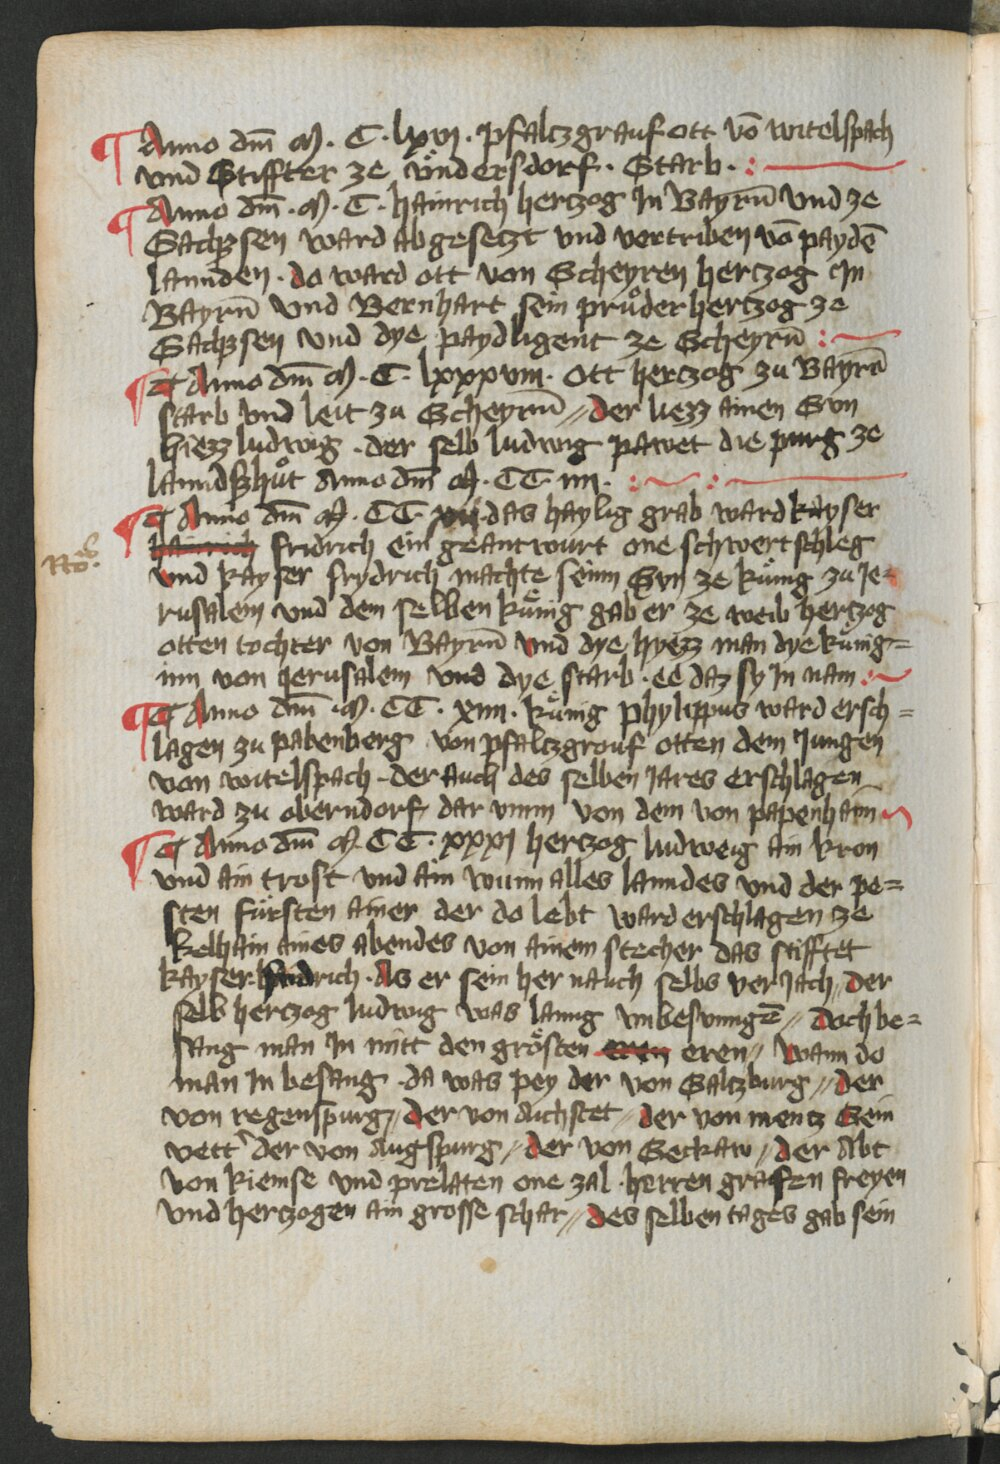 ¶ Anno dm̄ M. C. lxvj. pfaltzgrauf ott vō witelspach
vnd Stiffter ze vnͤdersdorf. Starb.
¶ Anno dm̄. M. C. hainrich hertzog Jn Bayrn̄ vnd ze
Sachssen ward abgesetzt vnd vertriben vō paydē
lannden. do ward ott von Scheyren hertzog Jn
Bayrn̄ vnd Bernhart sein pruͦder hertzog ze
Sachssen vnd dye payd ligent ze Scheyrn̄
¶ Anno dm̄ M. C. lxxxviij. Ott hertzog zu Bayrn̄
starb vnd leit zu Scheyrn̄ // der liezz ainen Svn
hiezz ludwig. der selb ludwig pawet die purg ze
lanndshuͦt Anno dm̄ M. CC. iiij.
¶ Anno dm̄ M. CC. das haylig grab ward kayser
hainrich fridrich ein geantwurt one schwertschleg
vnd kayser frydrich machte seinn Svn ze kuͤnig zu Je-
rusalem vnd dem selben kuͤnig gab er ze weib hertzog
otten tochter von Bayrn̄ vnd dye hyezz man dye kuͤnig=
inn von Jerusalem vnd dye starb. ee daz sy Jn nam
¶ Anno dm̄. M. CC. xiiij. kuͤnig phylippus ward ersch=
lagen zu pabenberg von pfaltzgrouf otten dem Jungen
von witelspach. der auch des selben Jares erschlagen
ward zu oberndorf dar vmm von dem von papenhaim̄
¶ Anno dm̄ M. CC. xxxj hertzog ludweig ain kron
vnd ain trost vnd ain wunn alles lanndes vnd der pe=
sten fuͤrsten ainer der do lebt ward erschlagen ze
kelhaim aines abendes von ainem stecher das stifftet
kayser fridrich. As er sein her nauch selbs ver Jach // der
selb hertzog ludwig was lanng vnbesvngē // doch be=
sang man Jn mitt den groͤsten eren eren // wann do
man Jn besang. da was pey der von Saltzburg // der
von regenspurg // der von Aichstet // der von mentz Sein
vett' der von Augspurg // der von Seckaw // der Abt
von kiemse vnd prelaten one zal. herren grafen freyen
vnd hertzogen ain grosse schar // des selben tages gab sein